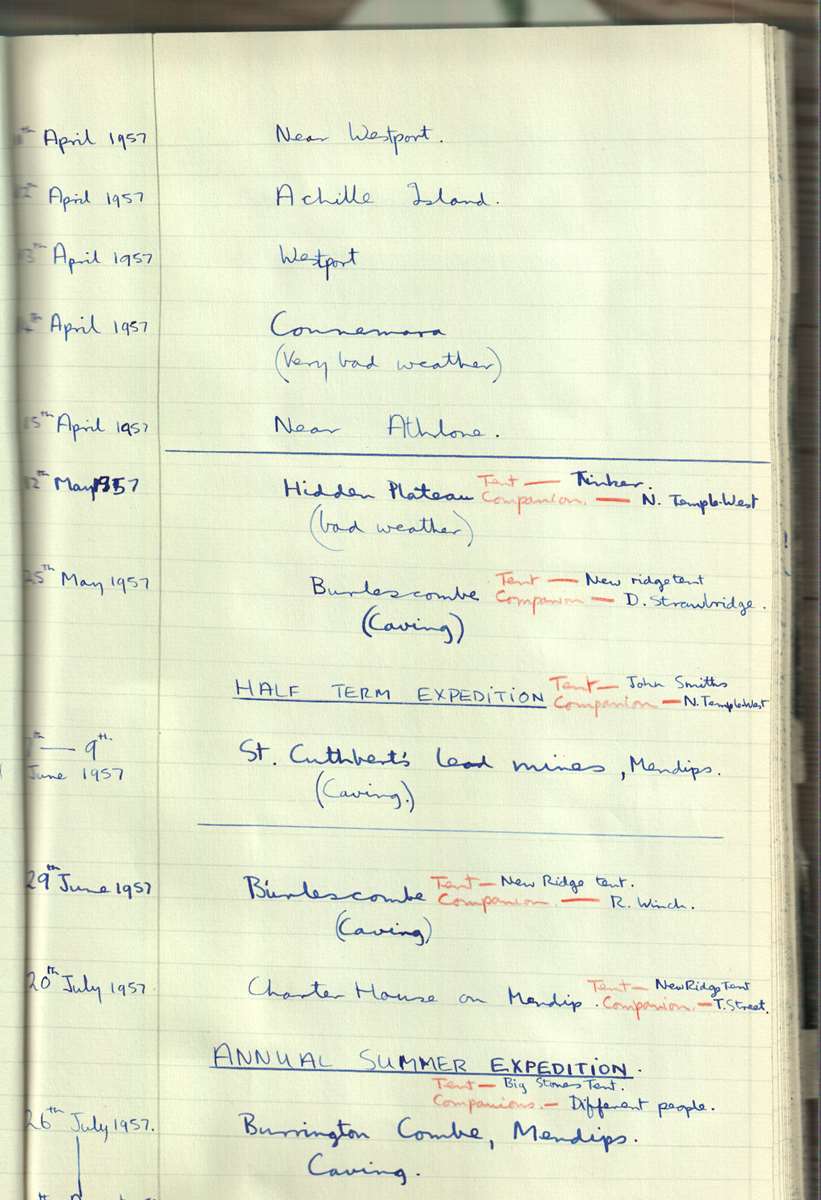 April 1957 Near Westport.
April 1957 Achille Island.
13th April 1957 Westport
April 1957 Connemara
(Very bad weather)
15th April 1957 Near Athlone.
12th May 1957 Hidden Plateau Tent — Tinker.
Companion. — N. Temple-West
(bad weather)
25th May 1957 Burlescombe Tent — New ridge tent
Companion — D. Strawbridge.
(Caving)
HALF TERM EXPEDITION Tent — John Smiths
Companion — N. Temple-West
— 9th June 1957 St. Cuthbert's lead mines, Mendips.
(Caving.)
29th June 1957 Burlescombe Tent — New Ridge tent.
Companion. — R. Winch.
(Caving)
20th July 1957. Charter House on Mendip. Tent — New Ridge Tent
Companion. — T. Street.
ANNUAL SUMMER EXPEDITION.
Tent — Big Stones Tent.
Companions. — Different people.
26th July 1957. Burrington Combe, Mendips.
Caving.